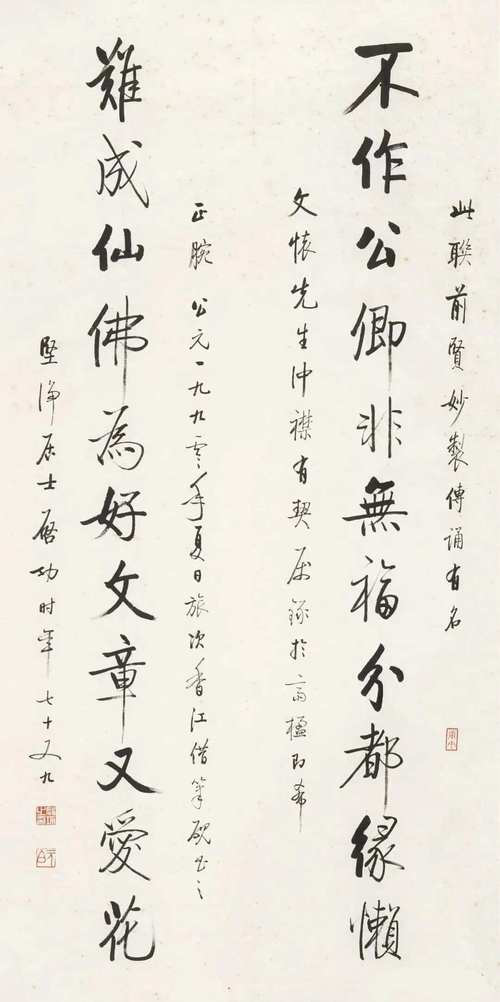 此聯前賢妙製傳誦有名
不作公卿非無福分都緣懶
文懷先生沖襟有契屬錄於高楹即希
正腕 公元一九九零年夏日旅次香江借筆硯書之
難成仙佛為好文章又愛花
堅淨居士啟功时年七十又九